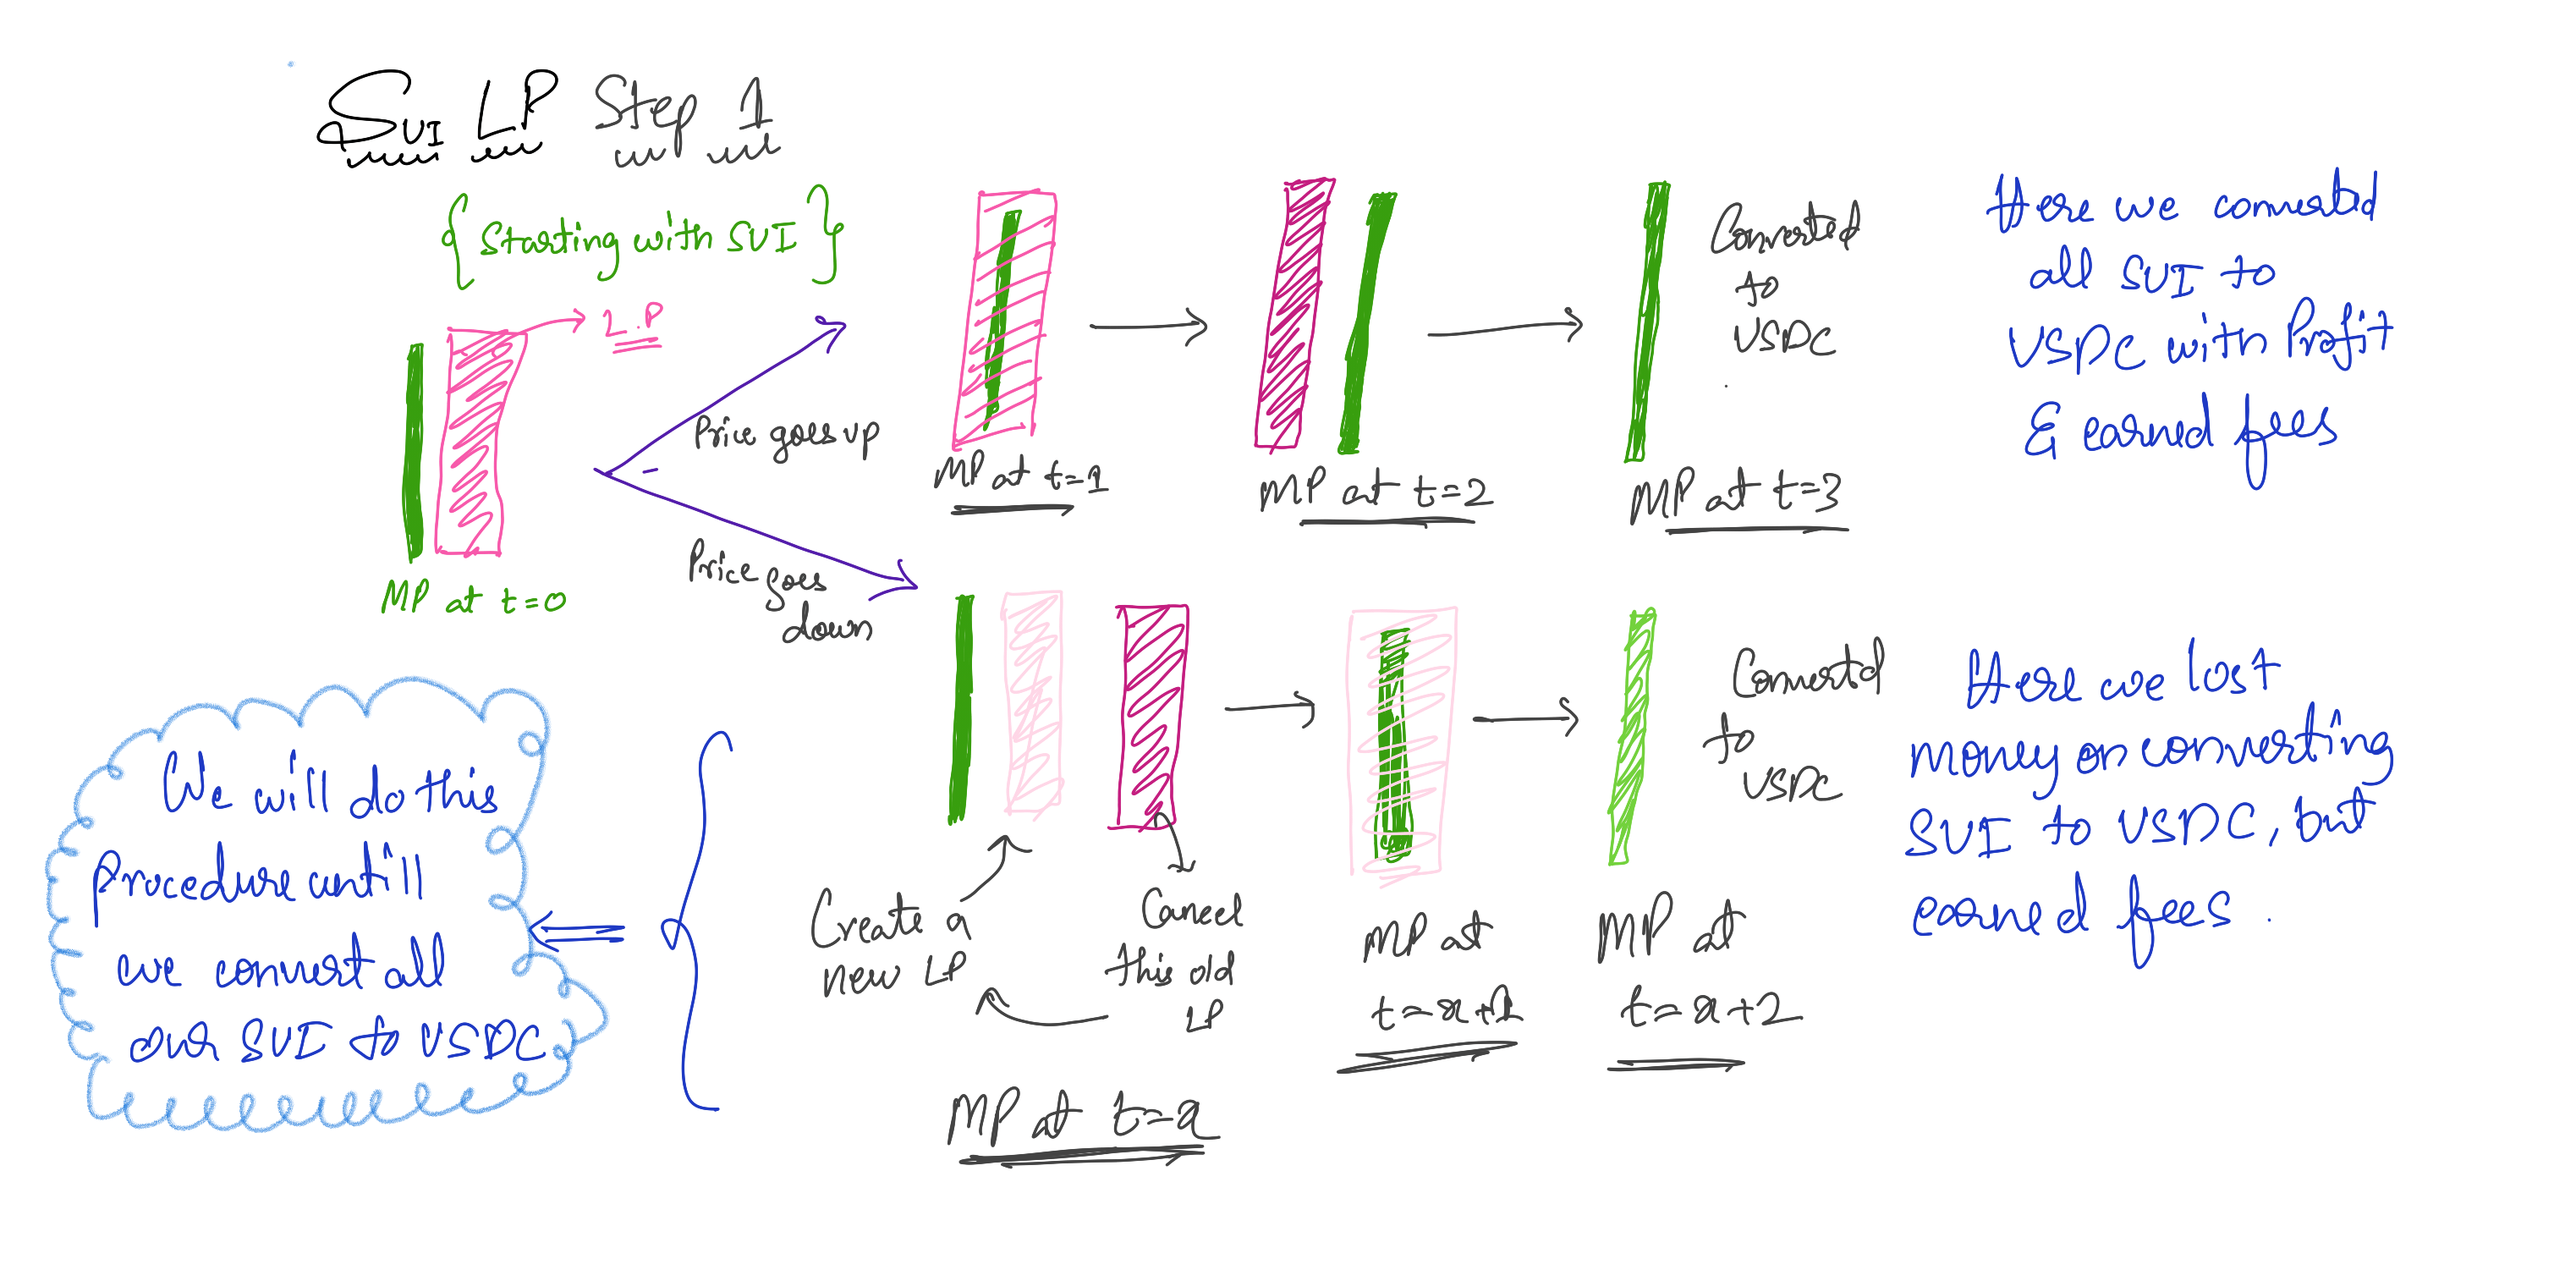 SUI LP Step 1
{ Starting with SUI }
L.P
MP at t=0
Price goes up
Price goes
down
MP at t=1
MP at t=2
MP at t=3
Converted
to
USDC
Here we converted
all SUI to
USDC with Profit
& earned fees
Create a
new LP
Cancel
this old
LP
MP at t=a
MP at
t=a+1
MP at
t=a+2
Converted
to
USDC
Here we lost
money on converting
SUI to USDC, but
earned fees.
We will do this
procedure untill
we convert all
our SUI to USDC